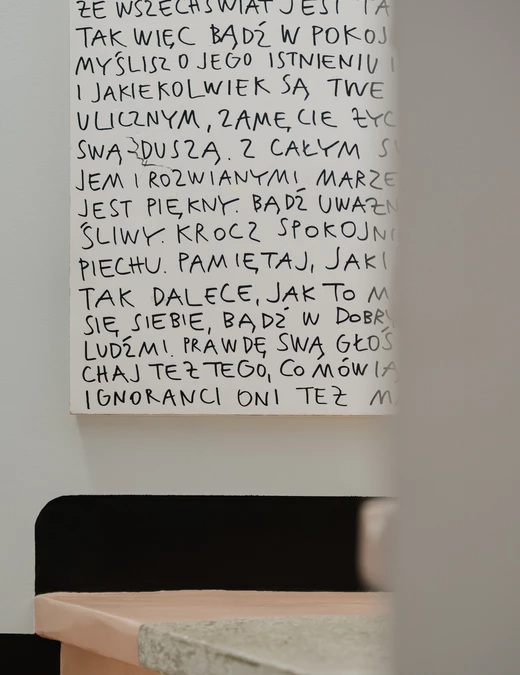 ŻE WSZECHŚWIAT JEST TA
TAK WIĘC BĄDŹ W POKOJ
MYŚLISZ O JEGO ISTNIENIU
I JAKIEKOLWIEK SĄ TWE
ULICZNYM, ZAMĘCIE ŻYC
SWĄ DUSZĄ. Z CAŁYM S
JEM I ROZWIANYMI MARZE
JEST PIĘKNY. BĄDŹ UWAŻN
ŚLIWY. KROCZ SPOKOJNI
PIECHU. PAMIĘTAJ, JAKI
TAK DALECE, JAK TO M
SIĘ SIEBIE, BĄDŹ W DOBRY
LUDŹMI. PRAWDĘ SWĄ GŁOŚ
CHAJ TEŻ TEGO, CO MÓWIĄ
IGNORANCI ONI TEŻ M